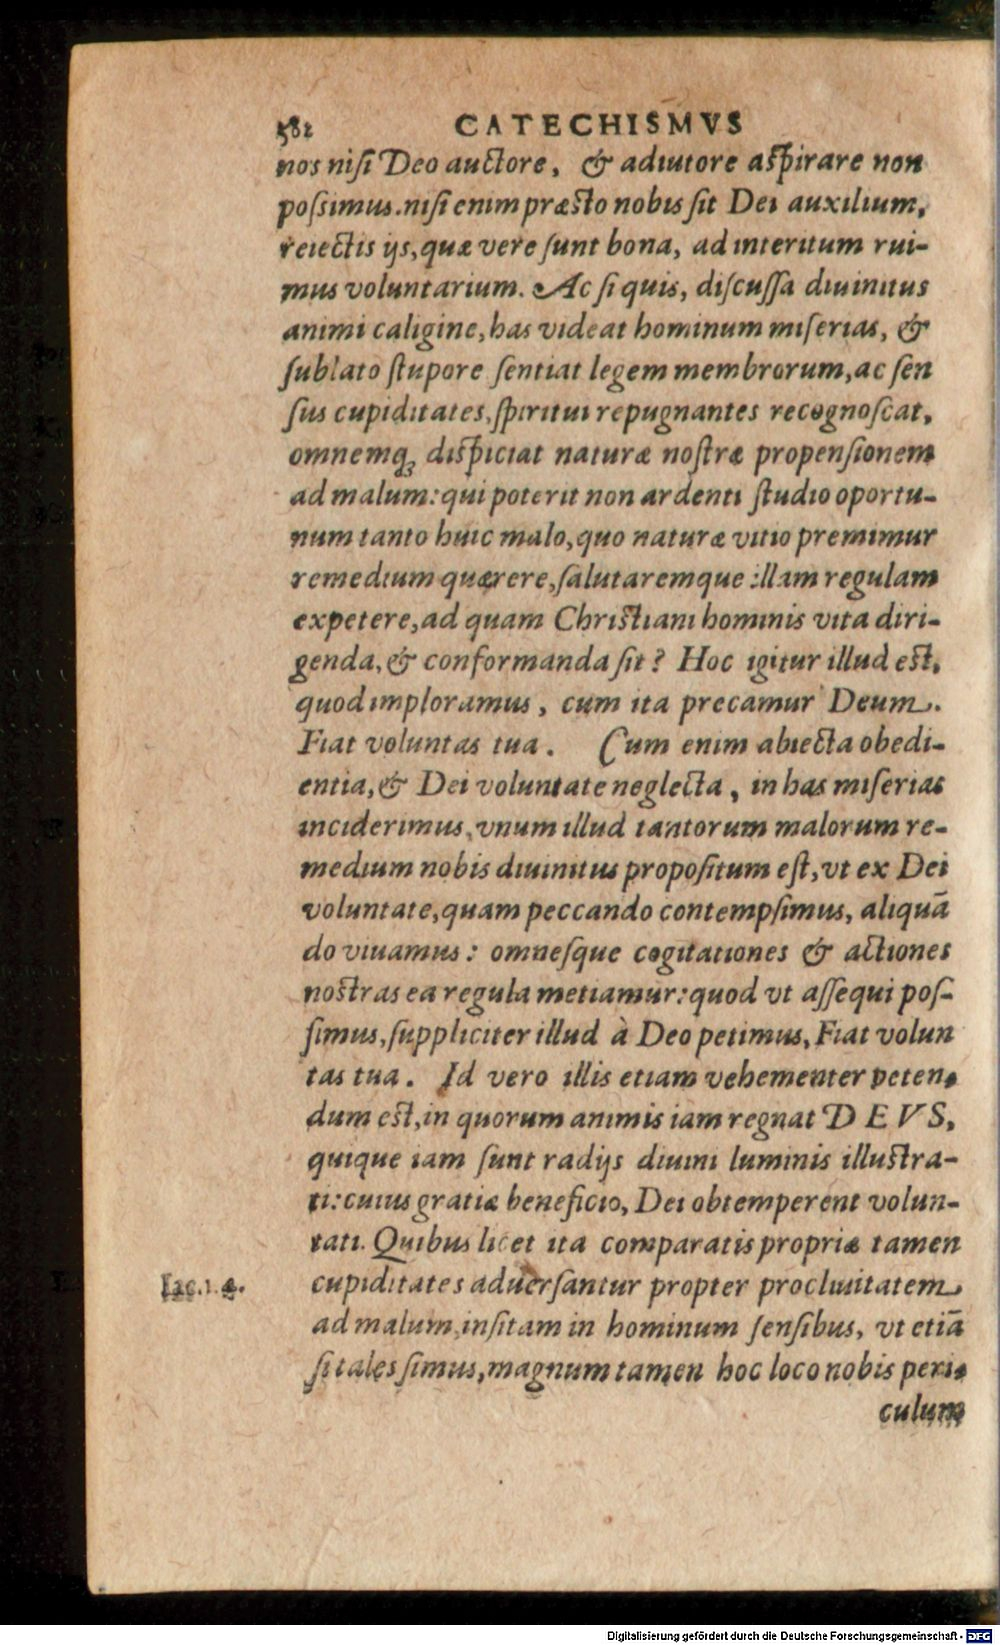 582 CATECHISMVS
nos nisi Deo auctore, & adiutore aspirare non
possimus. nisi enim præsto nobis sit Dei auxilium,
reiectis ijs, quæ vere sunt bona, ad interitum rui-
mus voluntarium. Ac si quis, discussa diuinitus
animi caligine, has videat hominum miserias, &
sublato stupore sentiat legem membrorum, ac sen
sus cupiditates, spiritui repugnantes recognoscat,
omnemq; dispiciat naturæ nostræ propensionem
ad malum: qui poterit non ardenti studio oportu-
num tanto huic malo, quo naturæ vitio premimur
remedium quærere, salutaremque illam regulam
expetere, ad quam Christiani hominis vita diri-
genda, & conformanda sit? Hoc igitur illud est,
quod imploramus, cum ita precamur Deum.
Fiat voluntas tua. Cum enim abiecta obedi-
entia, & Dei voluntate neglecta, in has miserias
inciderimus, vnum illud tantorum malorum re-
medium nobis diuinitus propositum est, vt ex Dei
voluntate, quam peccando contempsimus, aliquã
do viuamus: omnesque cogitationes & actiones
nostras ea regula metiamur: quod vt assequi pos-
simus, suppliciter illud à Deo petimus, Fiat volun
tas tua. Id vero illis etiam vehementer peten-
dum est, in quorum animis iam regnat DEVS,
quique iam sunt radijs diuini luminis illustra-
ti: cuius gratiæ beneficio, Dei obtemperent volun-
tati. Quibus licet ita comparatis propriæ tamen
Iac. 1. 4.
cupiditates aduersantur propter procliuitatem
ad malum, insitam in hominum sensibus, vt etiã
si tales simus, magnum tamen hoc loco nobis peri-
culum
Digitalisierung gefördert durch die Deutsche Forschungsgemeinschaft - DFG